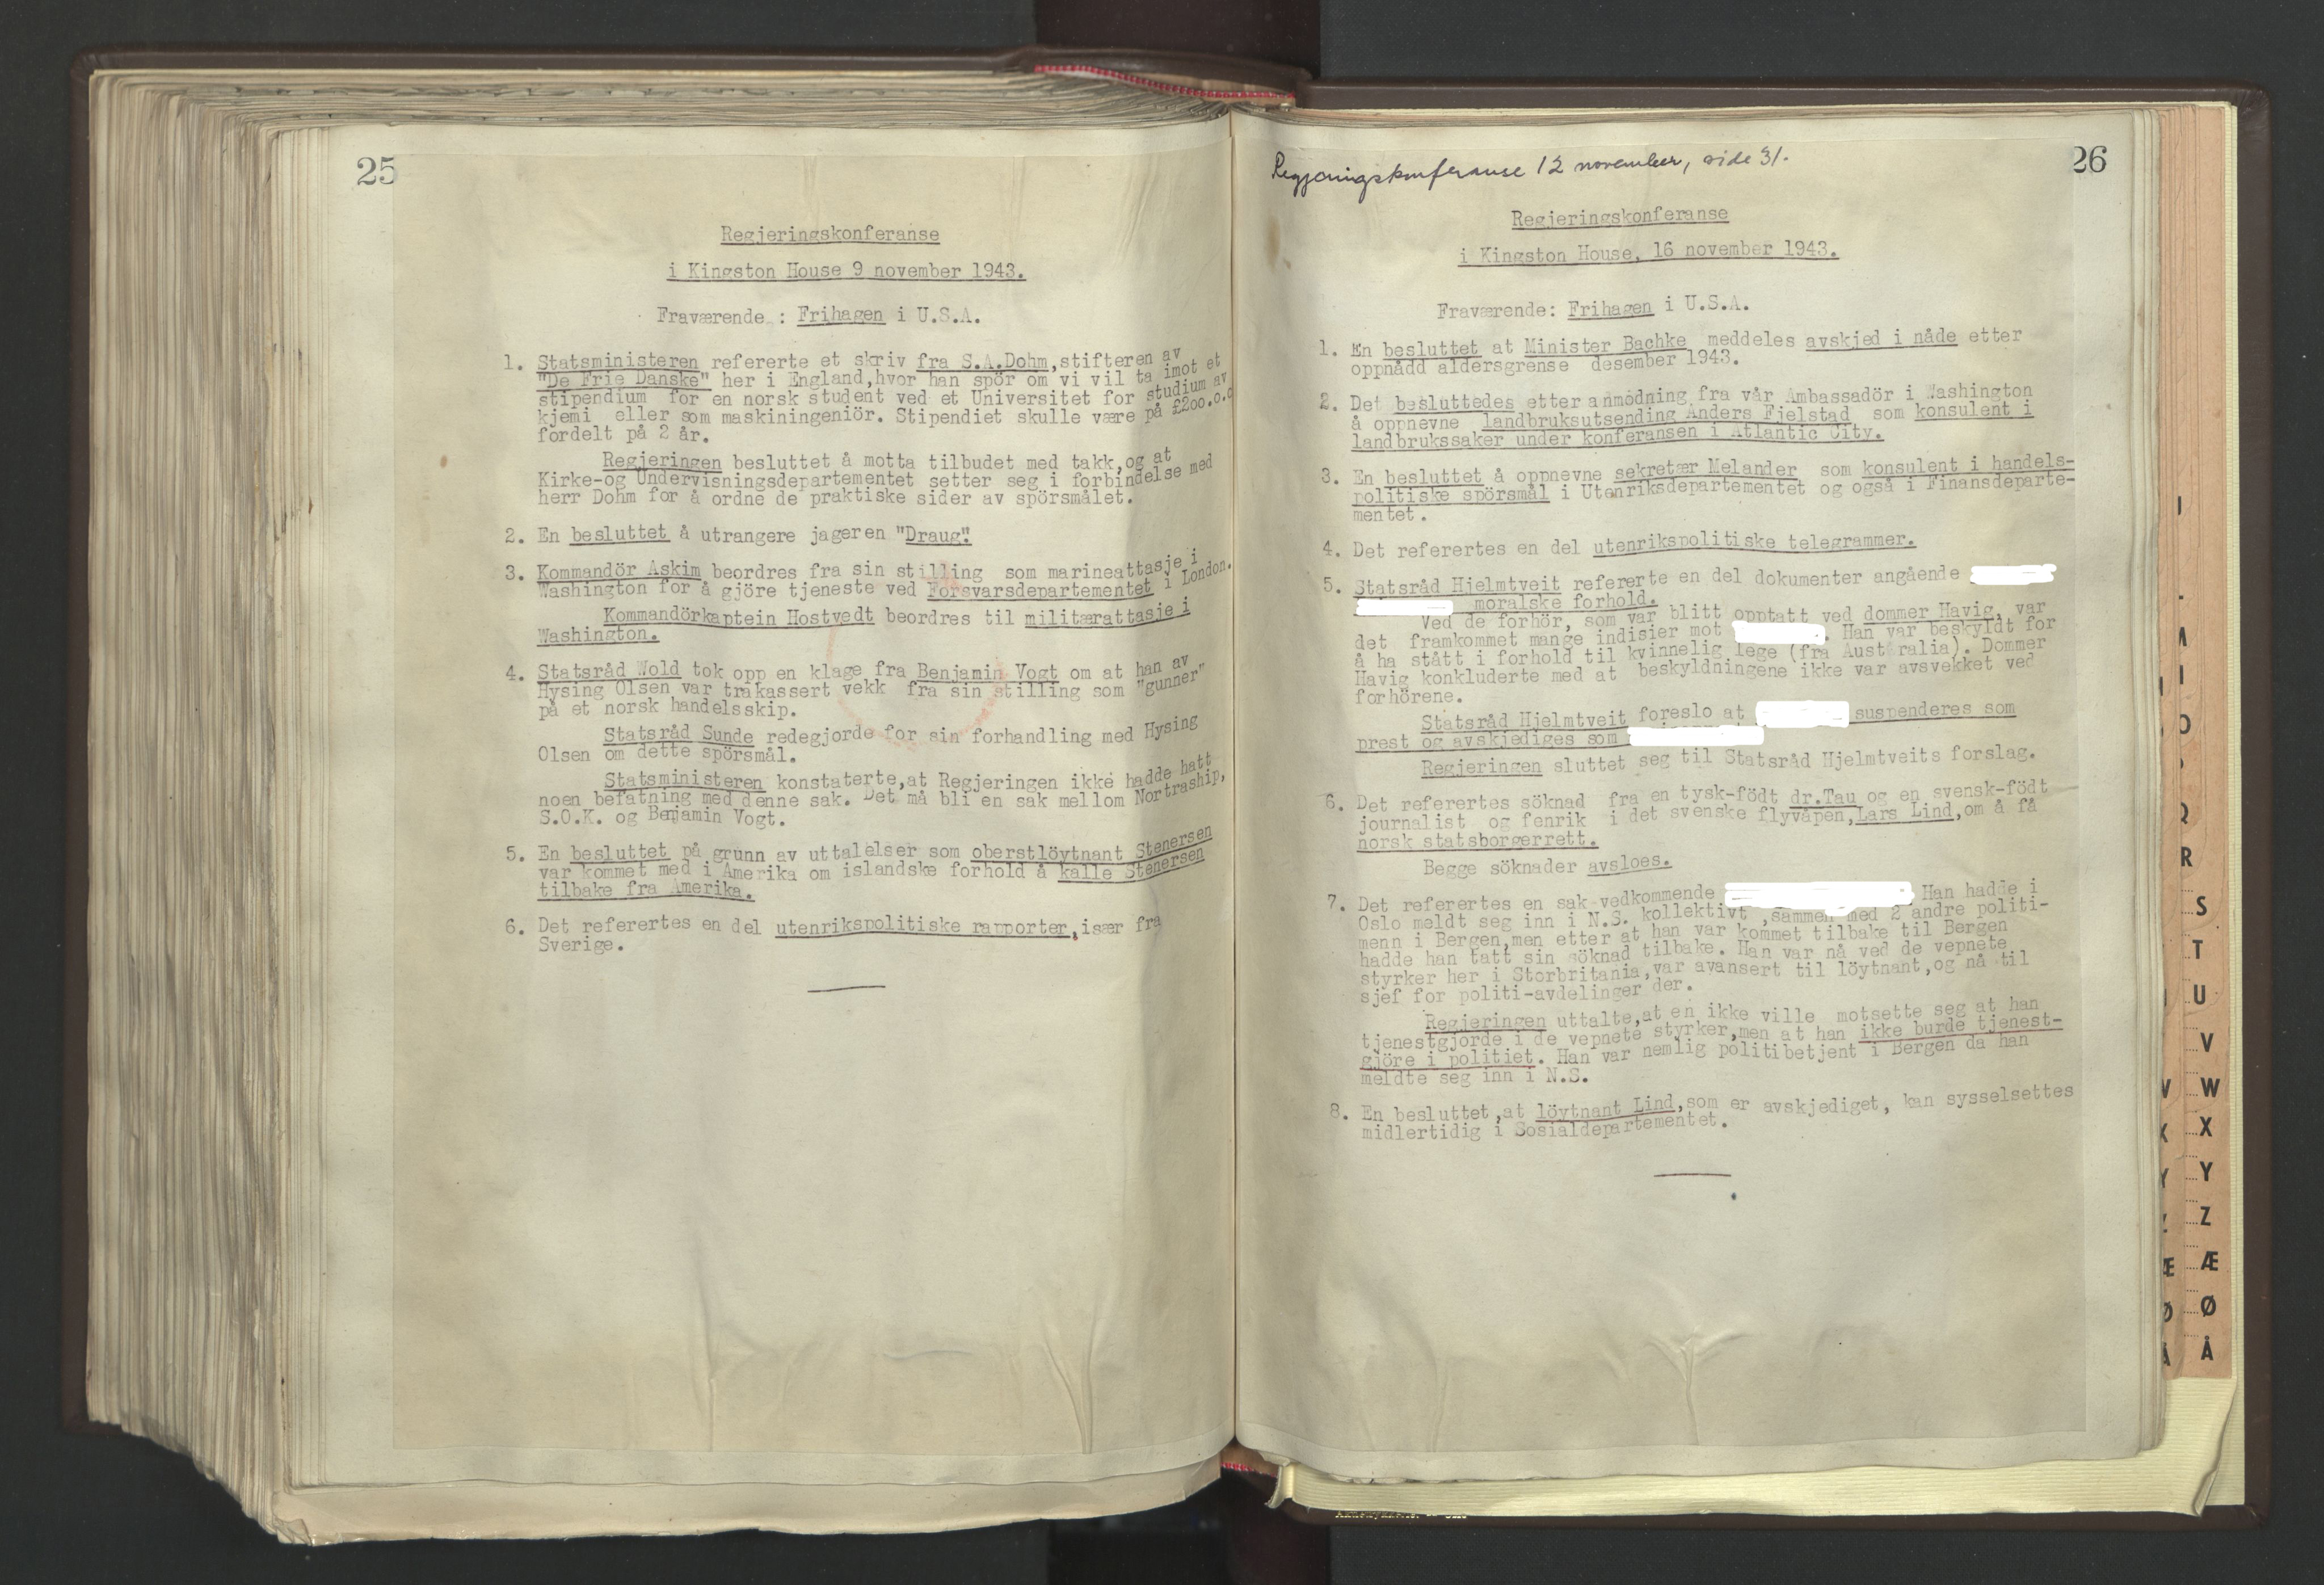 25
Regjeringskonferanse
i Kingston House 9 november 1943.
Fraværende : Frihagen i U.S.A.
1. Statsministeren refererte et skriv fra S.A.Dohm,stifteren av
"De Frie Danske" her i England,hvor han spör om vi vil ta imot et
stipendium for en norsk student ved et Universitet for studium av
kjemi eller som maskiningeniör. Stipendiet skulle være på £200.0.0
fordelt på 2 år.
Regjeringen besluttet å motta tilbudet med takk,og at
Kirke-og Undervisningsdepartementet setter seg i forbindelse med
herr Dohm for å ordne de praktiske sider av spörsmålet.
2. En besluttet å utrangere jageren "Draug".
3. Kommandör Askim beordres fra sin stilling som marineattasje i
Washington for å gjöre tjeneste ved Forsvarsdepartementet i London.
Kommandörkaptein Hostvedt beordres til militærattasje i
Washington.
4. Statsråd Wold tok opp en klage fra Benjamin Vogt om at han av
Hysing Olsen var trakassert vekk fra sin stilling som "gunner"
på et norsk handelsskip.
Statsråd Sunde redegjorde for sin forhandling med Hysing
Olsen om dette spörsmål.
Statsministeren konstaterte,at Regjeringen ikke hadde hatt
noen befatning med denne sak. Det må bli en sak mellom Nortraship,
S.O.K. og Benjamin Vogt.
5. En besluttet på grunn av uttalelser som oberstlöytnant Stenersen
var kommet med i Amerika om islandske forhold å kalle Stenersen
tilbake fra Amerika.
6. Det referertes en del utenrikspolitiske rapporter,især fra
Sverige.
Regjeringskonferanse 12 november, side 31.
26
Regjeringskonferanse
i Kingston House, 16 november 1943.
Fraværende: Frihagen i U.S.A.
1. En besluttet at Minister Bachke meddeles avskjed i nåde etter
oppnådd aldersgrense desember 1943.
2. Det besluttedes etter anmodning fra vår Ambassadör i Washington
å oppnevne landbruksutsending Anders Fjelstad som konsulent i
landbrukssaker under konferansen i Atlantic City.
3. En besluttet å oppnevne sekretær Melander som konsulent i handels-
politiske spörsmål i Utenriksdepartementet og også i Finansdeparte-
mentet.
4. Det referertes en del utenrikspolitiske telegrammer.
5. Statsråd Hjelmtveit refererte en del dokumenter angående
moralske forhold.
Ved de forhör, som var blitt opptatt ved dommer Havig, var
det framkommet mange indisier mot . Han var beskyldt for
å ha stått i forhold til kvinnelig lege (fra Australia). Dommer
Havig konkluderte med at beskyldningene ikke var avsvekket ved
forhörene.
Statsråd Hjelmtveit foreslo at suspenderes som
prest og avskjediges som
Regjeringen sluttet seg til Statsråd Hjelmtveits forslag.
6. Det referertes söknad fra en tysk-födt dr.Tau og en svensk-födt
journalist og fenrik i det svenske flyvåpen,Lars Lind,om å få
norsk statsborgerrett.
Begge söknader avsloes.
7. Det referertes en sak vedkommende . Han hadde i
Oslo meldt seg inn i N.S. kollektivt ,sammen med 2 andre politi-
menn i Bergen,men etter at han var kommet tilbake til Bergen
hadde han tatt sin söknad tilbake. Han var nå ved de vepnete
styrker her i Storbritania,var avansert til löytnant,og nå til
sjef for politi-avdelinger der.
Regjeringen uttalte,at en ikke ville motsette seg at han
tjenestgjorde i de vepnete styrker,men at han ikke burde tjenest-
gjöre i politiet. Han var nemlig politibetjent i Bergen da han
meldte seg inn i N.S.
8. En besluttet,at löytnant Lind,som er avskjediget, kan sysselsettes
midlertidig i Sosialdepartementet.
R
S
T
U
V
W
X
Y
Z
Æ
Ø
Å